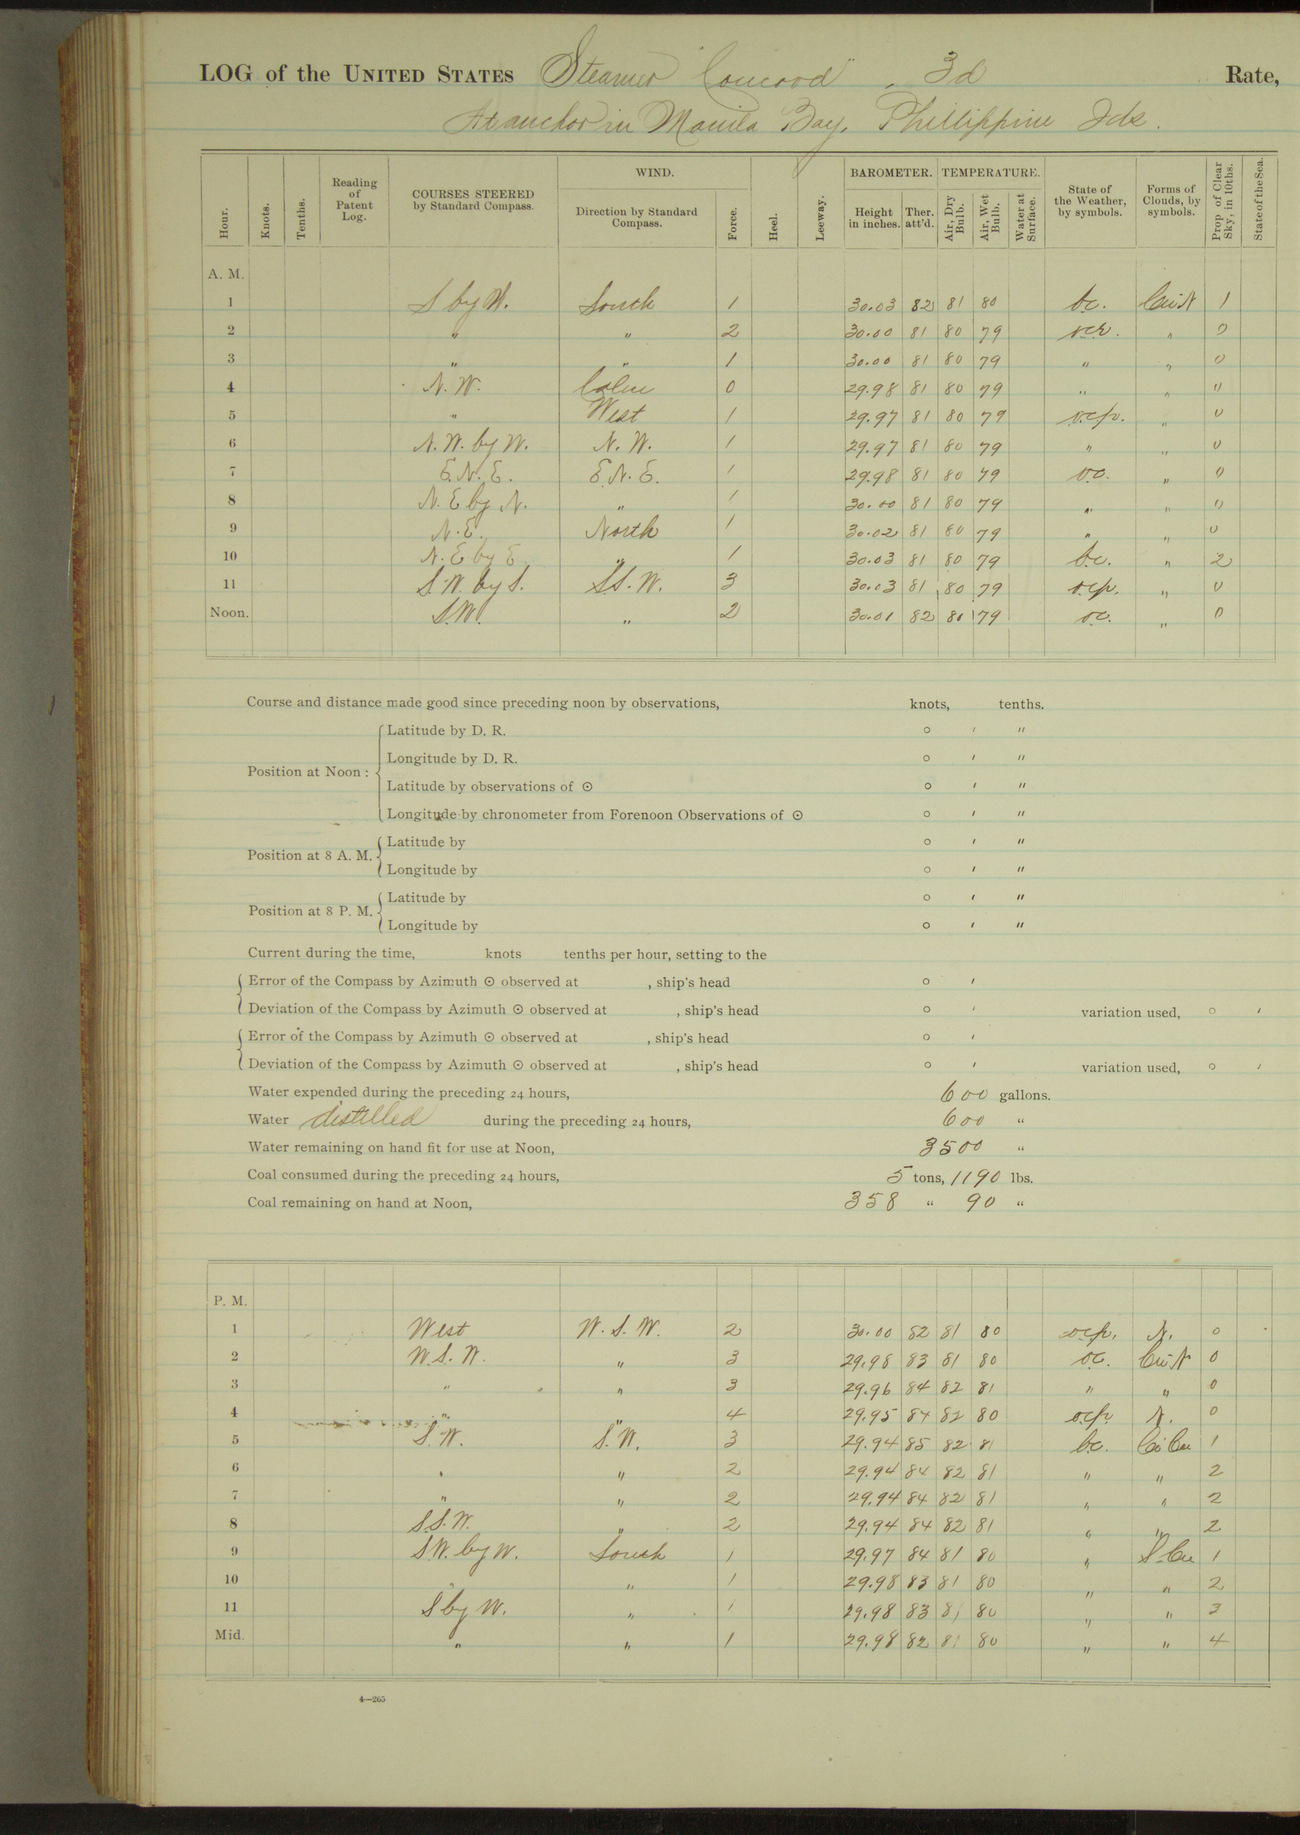 LOG of the UNITED STATES Steamer "Concord", 3d Rate,
At anchor in Manila Bay, Phillippine Ids.
Hour. Knots. Tenths. Reading of Patent Log. COURSES STEERED by Standard Compass. WIND. Direction by Standard Compass. Force. Heel. Leeway. BAROMETER. Height in inches. Ther. att'd. TEMPERATURE. Air, Dry Bulb. Air, Wet Bulb. Water at Surface. State of the Weather, by symbols. Forms of Clouds, by symbols. Prop. of Clear Sky, in 10ths. State of the Sea.
A. M.
1 S by W. South 1 30.03 82 81 80 b.c. Cu.N 1
2 " " 2 30.00 81 80 79 o.c.r. " 0
3 " " 1 30.00 81 80 79 " " 0
4 N. W. Calm 0 29.98 81 80 79 " " 0
5 " West 1 29.97 81 80 79 o.c.p. " 0
6 N. W. by W. N. W. 1 29.97 81 80 79 " " 0
7 E. N. E. E. N. E. 1 29.98 81 80 79 o.c. " 0
8 N. E by N. " 1 30.00 81 80 79 " " 0
9 N. E. North 1 30.02 81 80 79 " " 0
10 N. E by E " 1 30.03 81 80 79 b.c. " 2
11 S. W. by S. S.S. W. 3 30.03 81 80 79 o.c.p. " 0
Noon. S.W. " 2 30.01 82 81 79 o.c. " 0
Course and distance made good since preceding noon by observations, knots, tenths.
Position at Noon: Latitude by D. R. ° ′ ″
Longitude by D. R. ° ′ ″
Latitude by observations of ☉ ° ′ ″
Longitude by chronometer from Forenoon Observations of ☉ ° ′ ″
Position at 8 A. M. Latitude by ° ′ ″
Longitude by ° ′ ″
Position at 8 P. M. Latitude by ° ′ ″
Longitude by ° ′ ″
Current during the time, knots tenths per hour, setting to the
Error of the Compass by Azimuth ☉ observed at , ship's head ° ′
Deviation of the Compass by Azimuth ☉ observed at , ship's head ° ′ variation used, ° ′
Error of the Compass by Azimuth ☉ observed at , ship's head ° ′
Deviation of the Compass by Azimuth ☉ observed at , ship's head ° ′ variation used, ° ′
Water expended during the preceding 24 hours, 600 gallons.
Water distilled during the preceding 24 hours, 600 "
Water remaining on hand fit for use at Noon, 3500 "
Coal consumed during the preceding 24 hours, 5 tons, 1190 lbs.
Coal remaining on hand at Noon, 358 " 90 "
P. M.
1 West W. S. W. 2 30.00 82 81 80 o.c.p. N. 0
2 W. S. W. " 3 29.98 83 81 80 o.c. Cu.N 0
3 " " 3 29.96 84 82 81 " " 0
4 " " 4 29.95 84 82 80 o.c.p. N. 0
5 S. W. S. W. 3 29.94 85 82 81 b.c. Ci Cu 1
6 " " 2 29.94 84 82 81 " " 2
7 " " 2 29.94 84 82 81 " " 2
8 S.S. W. " 2 29.94 84 82 81 " " 2
9 S.W. by W. South 1 29.97 84 81 80 " S-Cu 1
10 " " 1 29.98 83 81 80 " " 2
11 S by W. " 1 29.98 83 81 80 " " 3
Mid. " " 1 29.98 82 81 80 " " 4
4—265